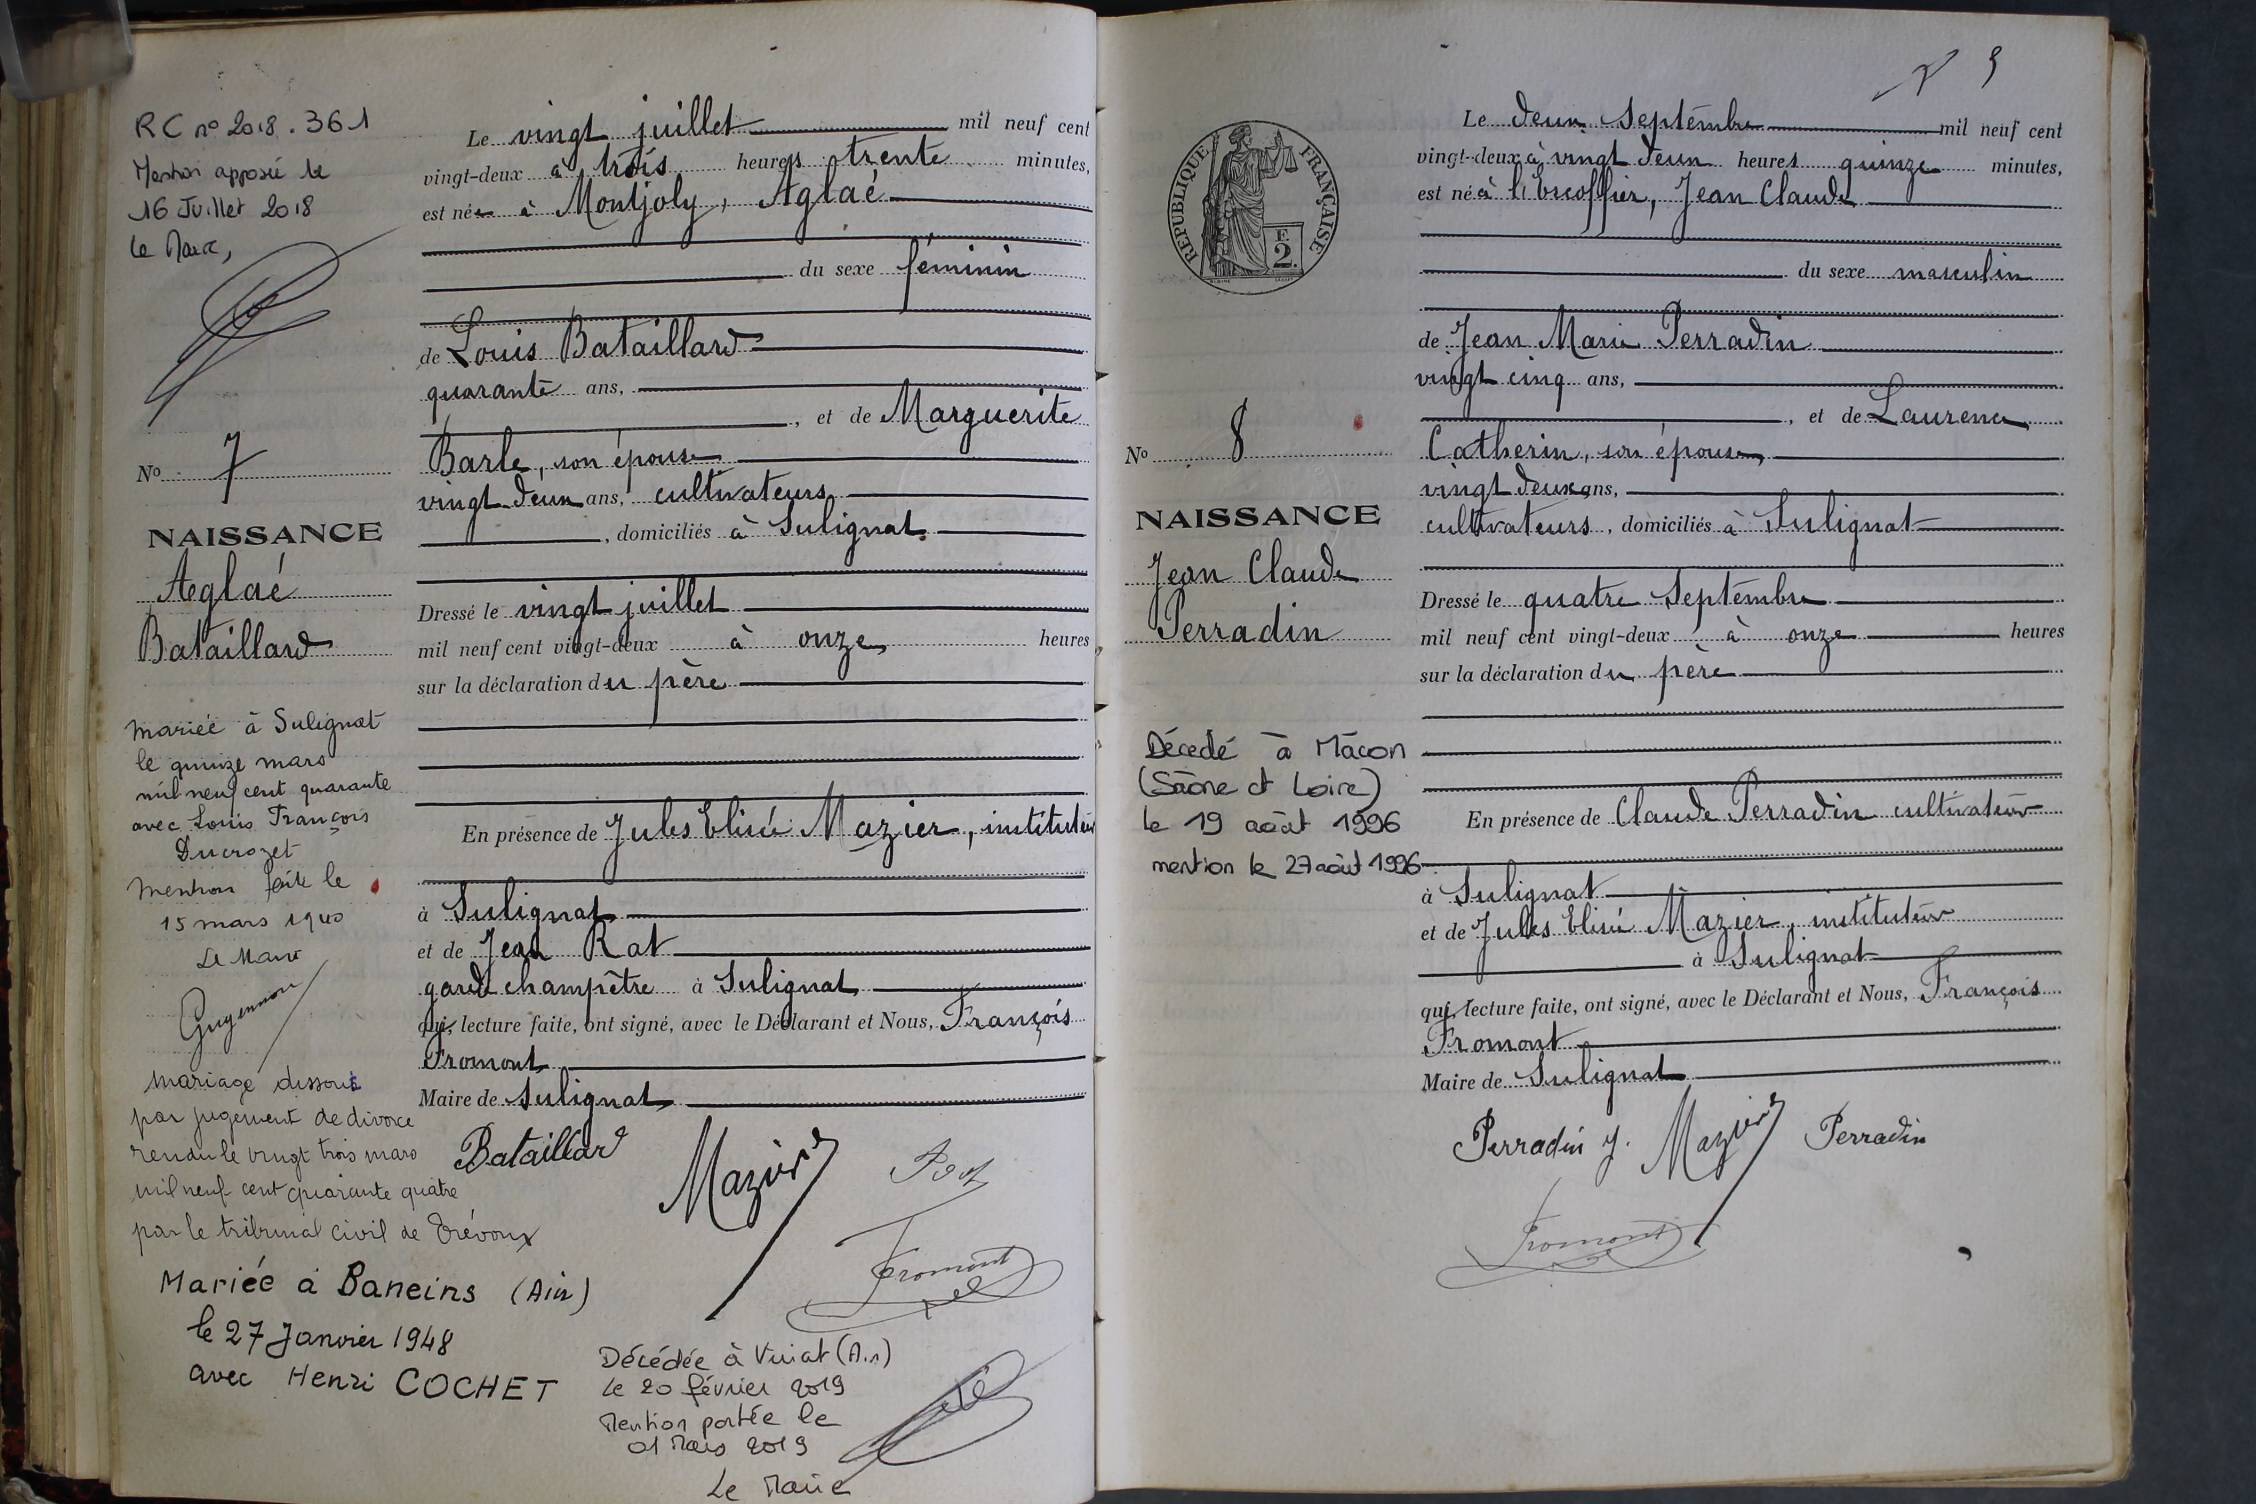 RC nº 2018.361
Mention apposée le
16 Juillet 2018
Le Maire,
Nº 7
NAISSANCE
Aglaé
Bataillard
mariée à Sulignat
le quinze mars
mil neuf cent quarante
avec Louis François
Ducrozet
mention faite le
15 mars 1940
Le Maire
Guyennon
mariage dissous
par jugement de divorce
rendu le vingt trois mars
mil neuf cent quarante quatre
par le tribunal civil de Trévoux
Mariée à Baneins (Ain)
le 27 Janvier 1948
avec Henri COCHET
Le vingt juillet mil neuf cent
vingt-deux à trois heures trente minutes,
est née à Montjoly, Aglaé
du sexe féminin
de Louis Bataillard
quarante ans,
, et de Marguerite
Barle, son épouse
vingt deux ans, cultivateurs
, domiciliés à Sulignat
Dressé le vingt juillet
mil neuf cent vingt-deux à onze heures
sur la déclaration du père
En présence de Jules Elisée Mazier, instituteur
à Sulignat
et de Jean Rat
garde champêtre à Sulignat
qui, lecture faite, ont signé, avec le Déclarant et Nous, François
Fromont
Maire de Sulignat
Bataillard Mazier Rat
Fromont
Décédée à Viriat (Ain)
le 20 février 2019
Mention portée le
01 Mars 2019
Le Maire
5
REPUBLIQUE FRANÇAISE
F.
2.
Nº 8
NAISSANCE
Jean Claude
Perradin
Décedé à Mâcon
(Saône et Loire)
le 19 août 1996
mention le 27 août 1996
Le deux Septembre mil neuf cent
vingt-deux à vingt deux heures quinze minutes,
est né à l'Escoffier, Jean Claude
du sexe masculin
de Jean Marie Perradin
vingt cinq ans,
, et de Laurence
Catherin, son épouse
vingt deux ans,
cultivateurs, domiciliés à Sulignat
Dressé le quatre Septembre
mil neuf cent vingt-deux à onze heures
sur la déclaration du père
En présence de Claude Perradin cultivateur
à Sulignat
et de Jules Elisée Mazier, instituteur
à Sulignat
qui, lecture faite, ont signé, avec le Déclarant et Nous, François
Fromont
Maire de Sulignat
Perradin J. Mazier Perradin
Fromont